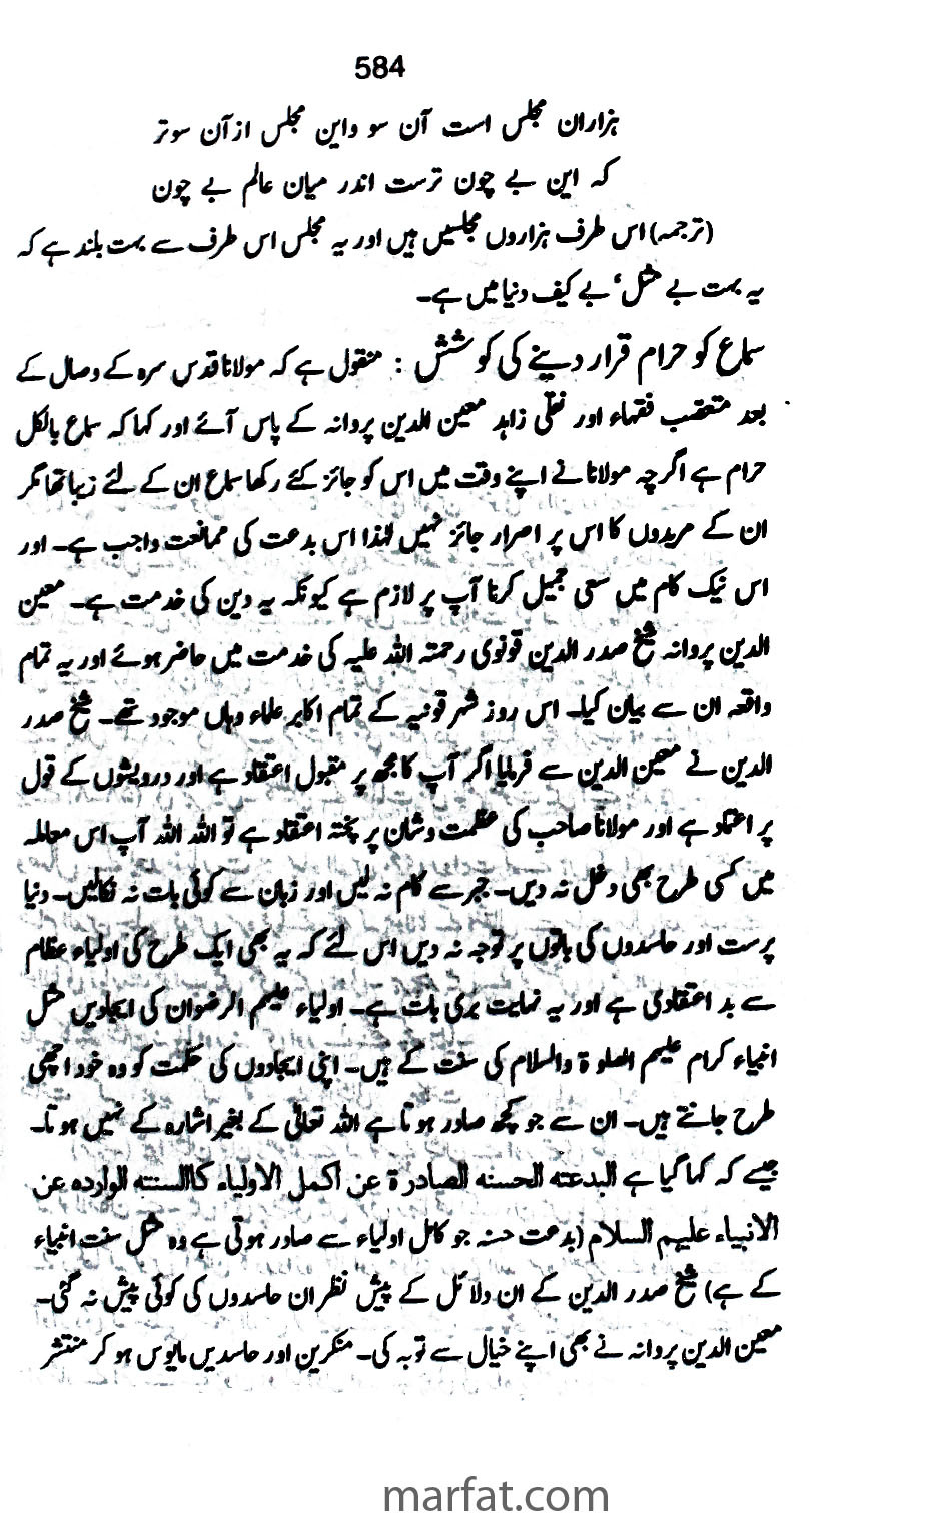 584
ہزاران مجلس است آن سو واین مجلس ازآن سوتر
کہ این بے چون ترست اندر میان عالم بے چون
(ترجمہ) اس طرف ہزاروں مجلسیں ہیں اور یہ مجلس اس طرف سے بہت بلند ہے کہ
یہ بہت بے مثل، بے کیف دنیا میں ہے۔
سماع کو حرام قرار دینے کی کوشش : منقول ہے کہ مولانا قدس سرہ کے وصال کے
بعد متعصب فقہاء اور نقلی زاہد معین الدین پروانہ کے پاس آئے اور کہا کہ سماع بالکل
حرام ہے اگرچہ مولانا نے اپنے وقت میں اس کو جائز کئے رکھا سماع ان کے لئے زیبا تھا مگر
ان کے مریدوں کا اس پر اصرار جائز نہیں لہٰذا اس بدعت کی ممانعت واجب ہے۔ اور
اس نیک کام میں سعی جمیل کرنا آپ پر لازم ہے کیونکہ یہ دین کی خدمت ہے۔ معین
الدین پروانہ شیخ صدر الدین قونوی رحمتہ اللہ علیہ کی خدمت میں حاضر ہوئے اور یہ تمام
واقعہ ان سے بیان کیا۔ اس روز شہر قونیہ کے تمام اکابر علماء وہاں موجود تھے۔ شیخ صدر
الدین نے معین الدین سے فرمایا اگر آپ کا مجھ پر مقبول اعتقاد ہے اور درویشوں کے قول
پر اعتماد ہے اور مولانا صاحب کی عظمت و شان پر پختہ اعتقاد ہے تو اللہ اللہ آپ اس معاملہ
میں کسی طرح بھی دخل نہ دیں۔ جبر سے کام نہ لیں اور زبان سے کوئی بات نہ نکالیں۔ دنیا
پرست اور حاسدوں کی باتوں پر توجہ نہ دیں اس لئے کہ یہ بھی ایک طرح کی اولیاء عظام
سے بد اعتقادی ہے اور یہ نہایت بری بات ہے۔ اولیاء علیہم الرضوان کی ایجادیں مثل
انبیاء کرام علیہم الصلو ۃ والسلام کی سنت کے ہیں۔ اپنی ایجادوں کی حکمت کو وہ خود اچھی
طرح جانتے ہیں۔ ان سے جو کچھ صادر ہوتا ہے اللہ تعالیٰ کے بغیر اشارہ کے نہیں ہوتا۔
جیسے کہ کہا گیا ہے البدعتہ الحسنہ الصادرۃ عن اکمل الاولیاء کاالسنتہ الواردہ عن
الانبیاء علیہم السلام (بدعت حسنہ جو کامل اولیاء سے صادر ہوتی ہے وہ مثل سنت انبیاء
کے ہے) شیخ صدر الدین کے ان دلائل کے پیش نظر ان حاسدوں کی کوئی پیش نہ گئی۔
معین الدین پروانہ نے بھی اپنے خیال سے توبہ کی۔ منکرین اور حاسدیں مایوس ہو کر منتشر
marfat.com